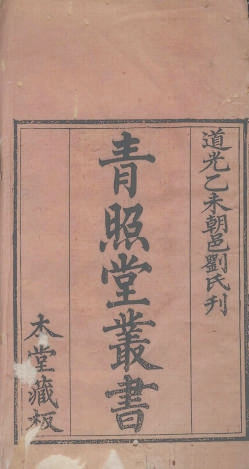 道光乙未朝邑劉氏刊
青照堂叢書
本堂藏板